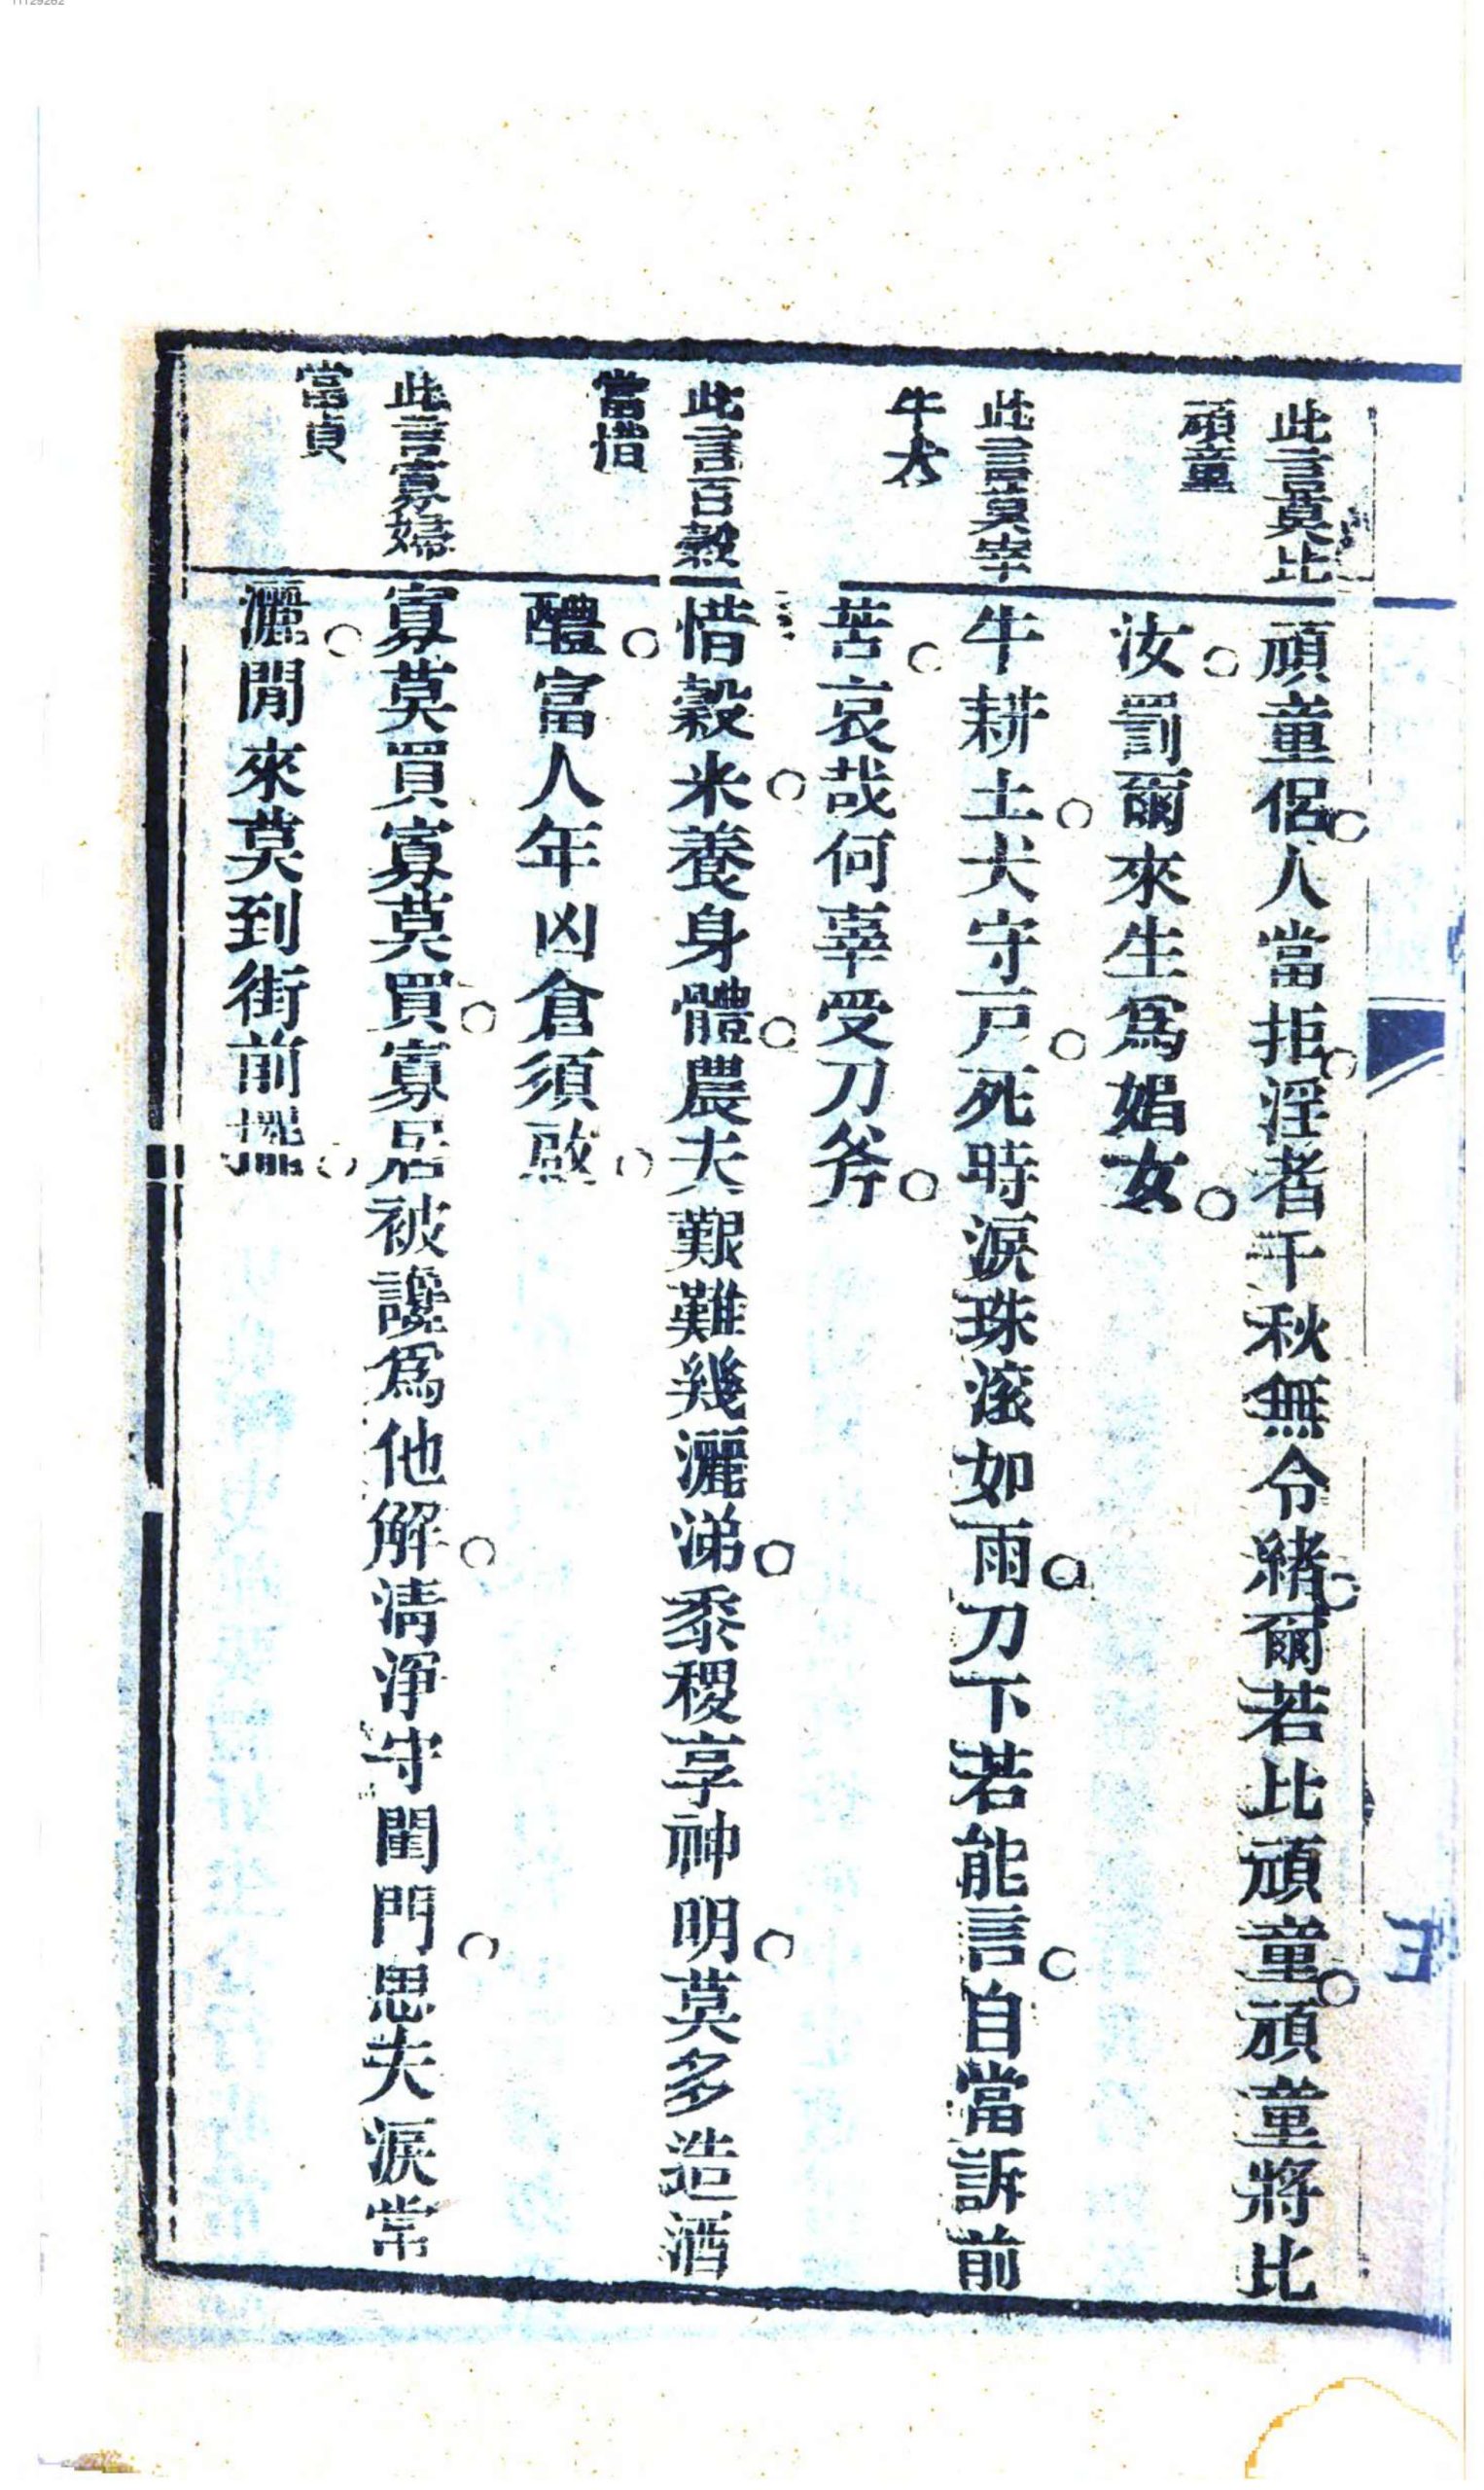 此言莫比
頑童
頑童侶人當拒淫者千秋無令緒爾若比頑童頑童將比
汝罰爾來生為娼女
此言莫宰
牛犬
牛耕土犬守戸死時淚珠滚如雨刀下若能言自當訴前
苦哀哉何辜受刀斧
此言百穀
當惜
惜穀米養身體農夫艱難幾灑涕黍稷享神明莫多造酒
醴富人年凶倉須啟
此言寡婦
當貞
寡莫買寡莫買寡居被讒為他解清淨守閨門思夫淚常
灑閒來莫到街前擺